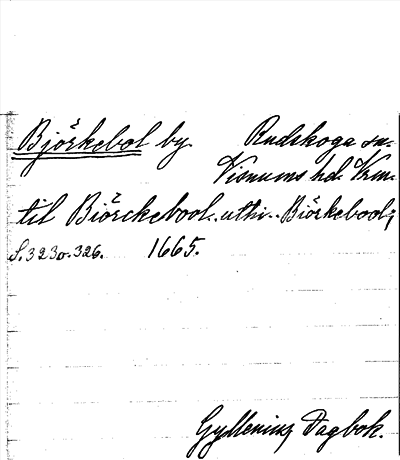 Björkebol by Rudskoga sn.
Visnums hd. Vrm.
til Biörckebool. uthi.. Biörkebool,
S. 323 o. 326. 1665.
Gyllenius Dagbok.